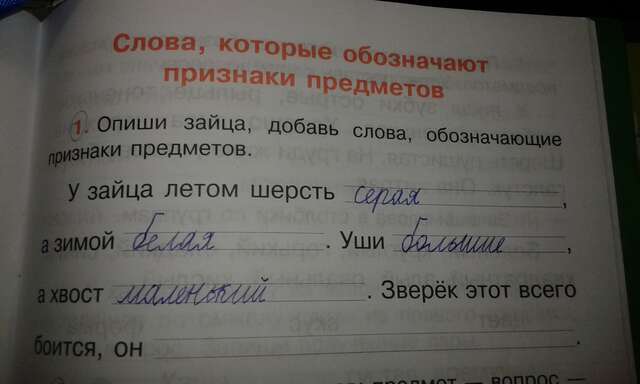 Слова, которые обозначают
признаки предметов
1. Опиши зайца, добавь слова, обозначающие
признаки предметов.
У зайца летом шерсть серая,
а зимой белая. Уши большие,
а хвост маленький. Зверёк этот всего
боится, он .
предмет — вопрос —